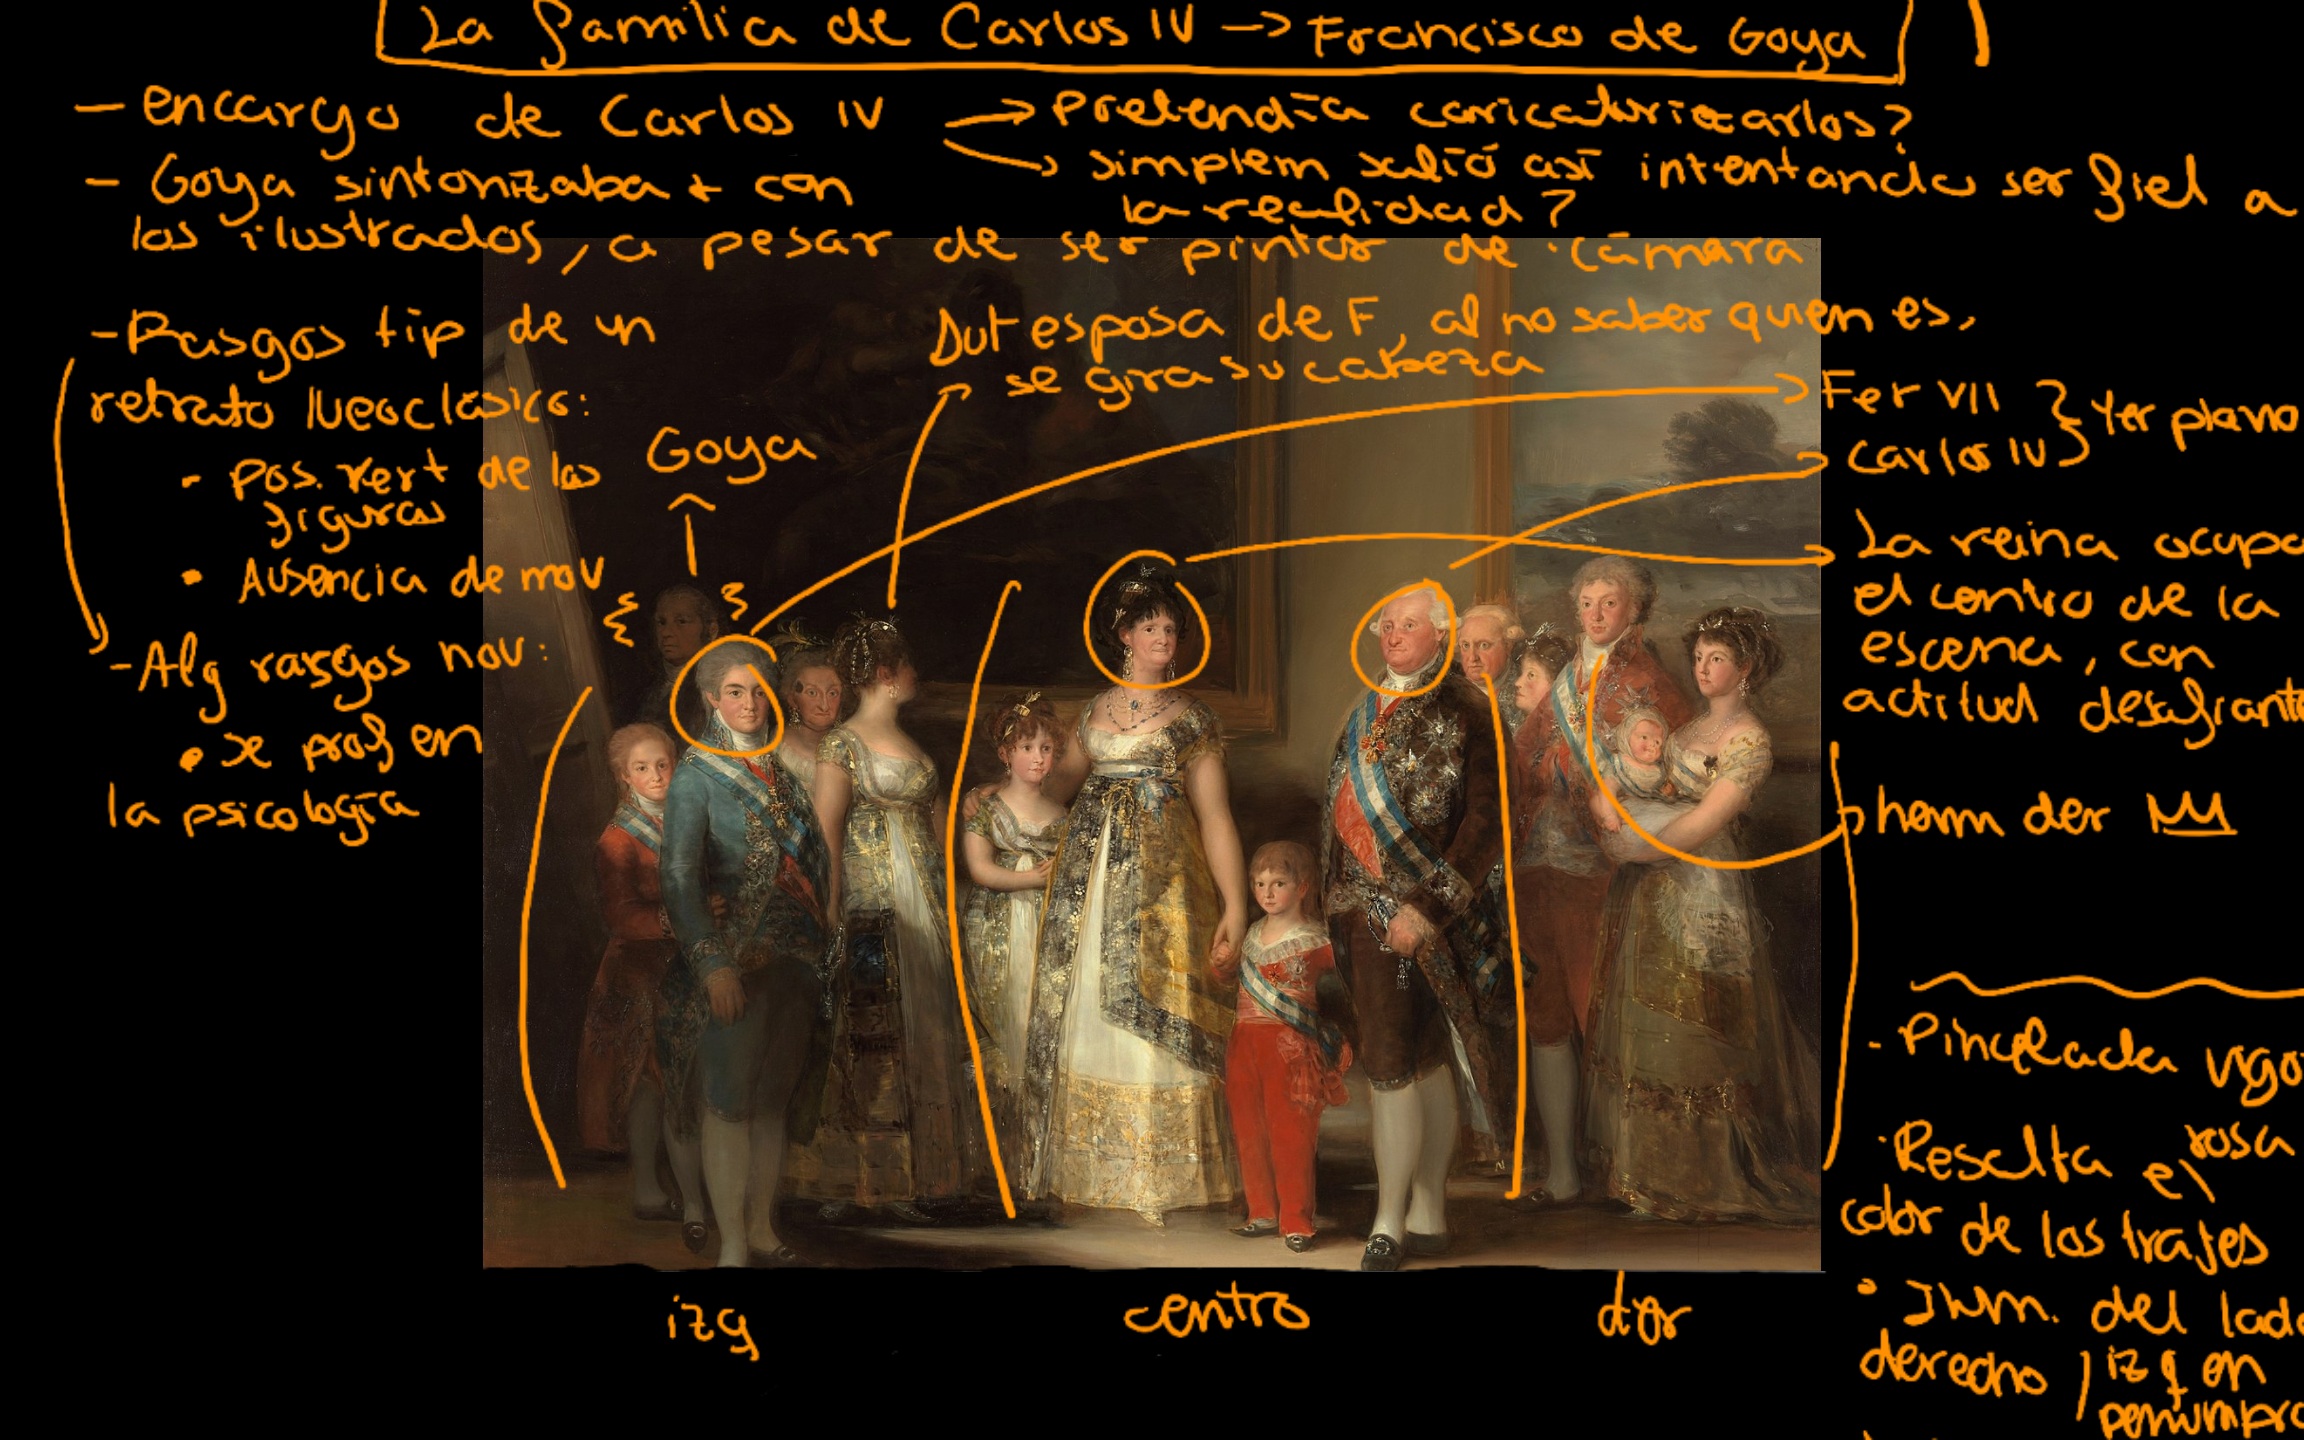 La familia de Carlos IV → Francisco de Goya
- encargo de Carlos IV → Pretendía caricaturizarlos?
→ simplem salió así intentando ser fiel a
la realidad?
- Goya sintonizaba + con
los ilustrados, a pesar de ser pintor de cámara
- Rasgos tip de un
retrato Neoclásico:
• pos. vert de las
figuras
• Ausencia de mov
- Alg rasgos nov:
• se prof en
la psicología
Goya
Fut esposa de F, al no saber quien es,
se gira su cabeza
Fer VII
Carlos IV } 1er plano
La reina ocupa
el centro de la
escena, con
actitud desafiante
herm der
- Pincelada vigo
• Resalta el rosa
color de los trajes
• Ilum. del lado
derecho, izq en
penumbra
izq
centro
der